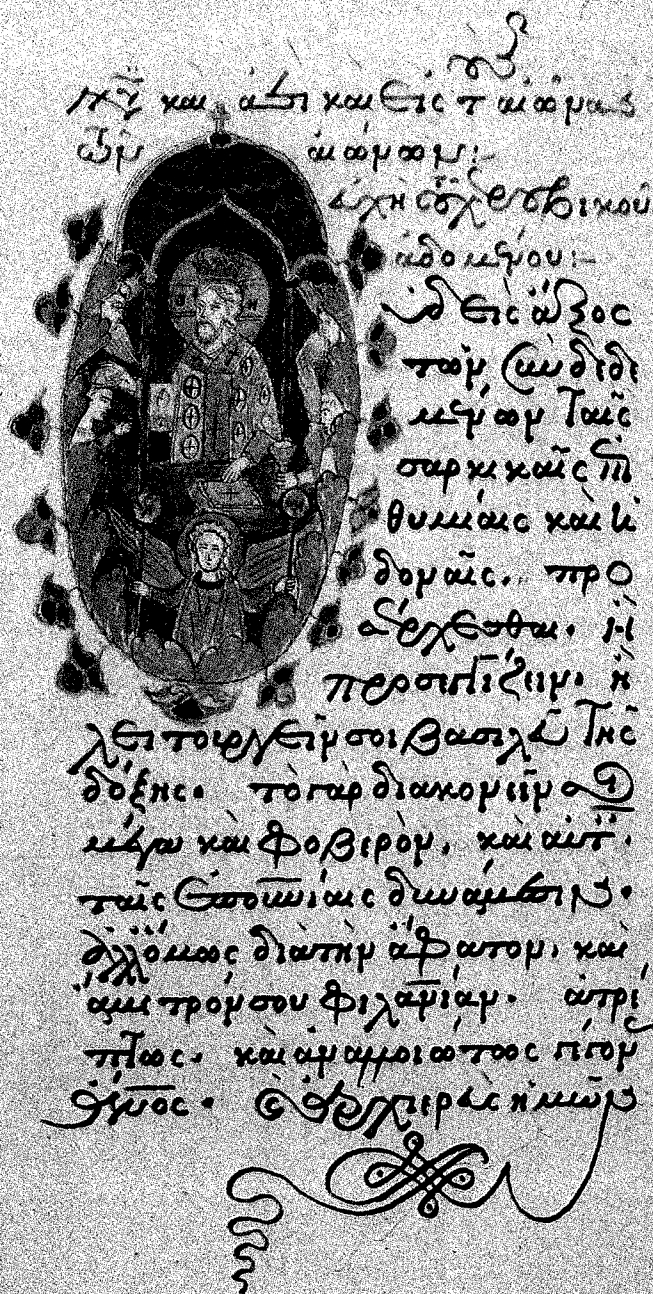 νῦ καὶ ἀεὶ καὶ εἰς τ αἰῶνας
τῶν αἰώνων:-
εὐχὴ τοῦ χερουβικοῦ
ἀδομένου:-
υδεὶς ἄξιος
τῶν συνδεδε
μένων ταῖς
σαρκικαῖς ἐπι
θυμίαις καὶ ἡ
δοναῖς. προ
σέρχεσθαι. ἢ
προσεγγίζειν. ἢ
λειτουργεῖν σοι βασιλεῦ τῆς
δόξης. τὸ γὰρ διακονεῖν σοι
μέγα καὶ φοβερὸν, καὶ αὐτ.
ταῖς ἐπουνίαις δυνάμεσιν.
ἀλλ ὅμως διὰ τὴν ἄφατον, καὶ
ἀμετρόν σου φιλανίαν. ἀτρέ
πτως. καὶ ἀναλλοιώτως γέγον
ἄνος. καὶ ἀρχιερεὺς ἡμῶν